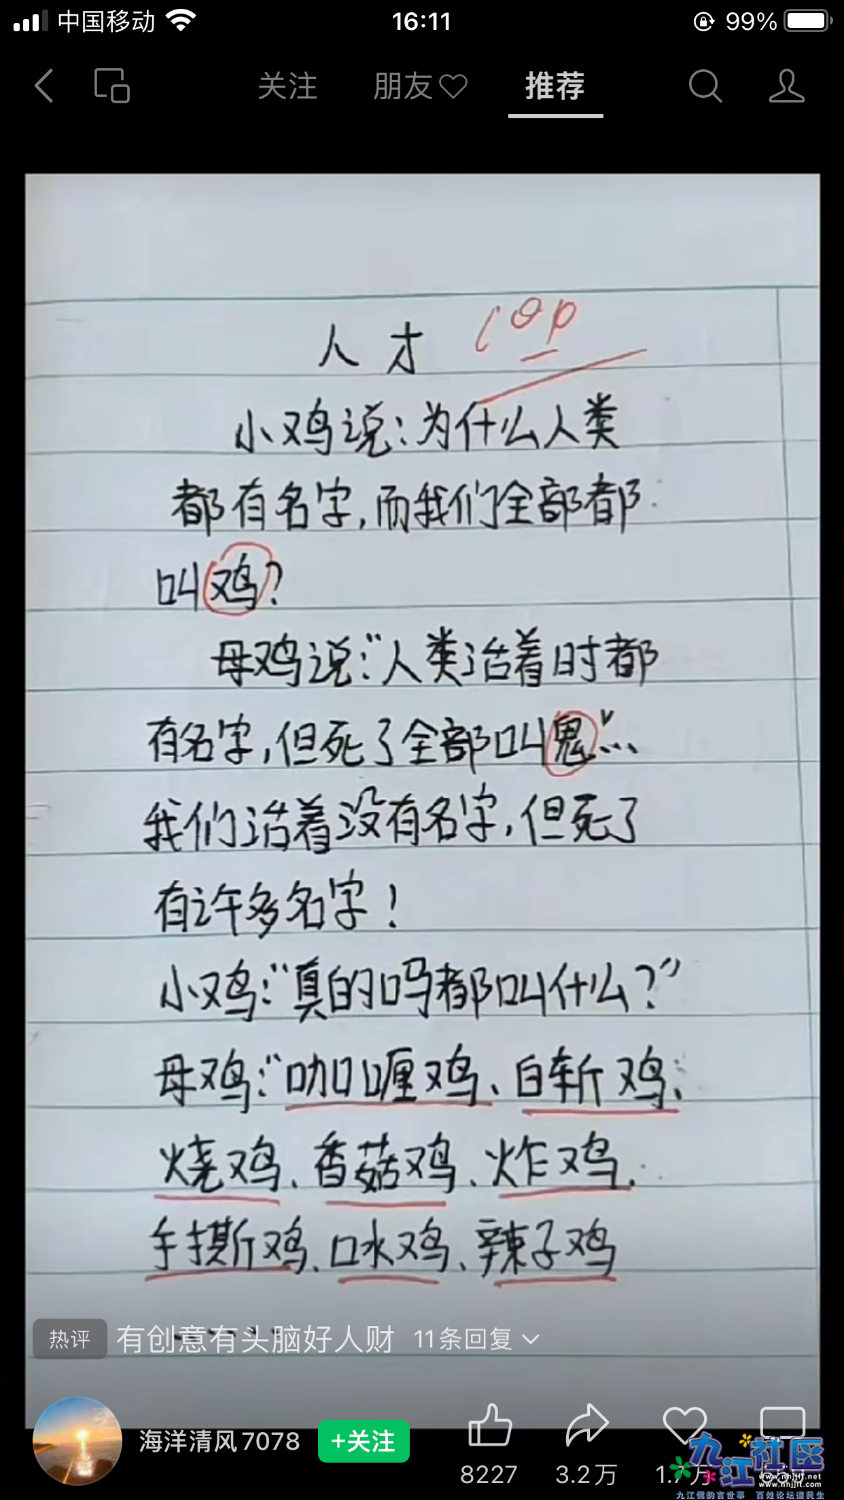 中国移动 16:11 99%
关注 朋友 推荐
人才 100
小鸡说:为什么人类
都有名字,而我们全部都
叫鸡?
母鸡说:“人类活着时都
有名字,但死了全部叫鬼”...
我们活着没有名字,但死了
有许多名字!
小鸡:“真的吗都叫什么?”
母鸡:“咖喱鸡、白斩鸡、
烧鸡、香菇鸡、炸鸡、
手撕鸡、口水鸡、辣子鸡
热评 有创意有头脑好人财 11条回复
海洋清风7078 +关注
8227 3.2万
九江社区
www.nhjjlt.com